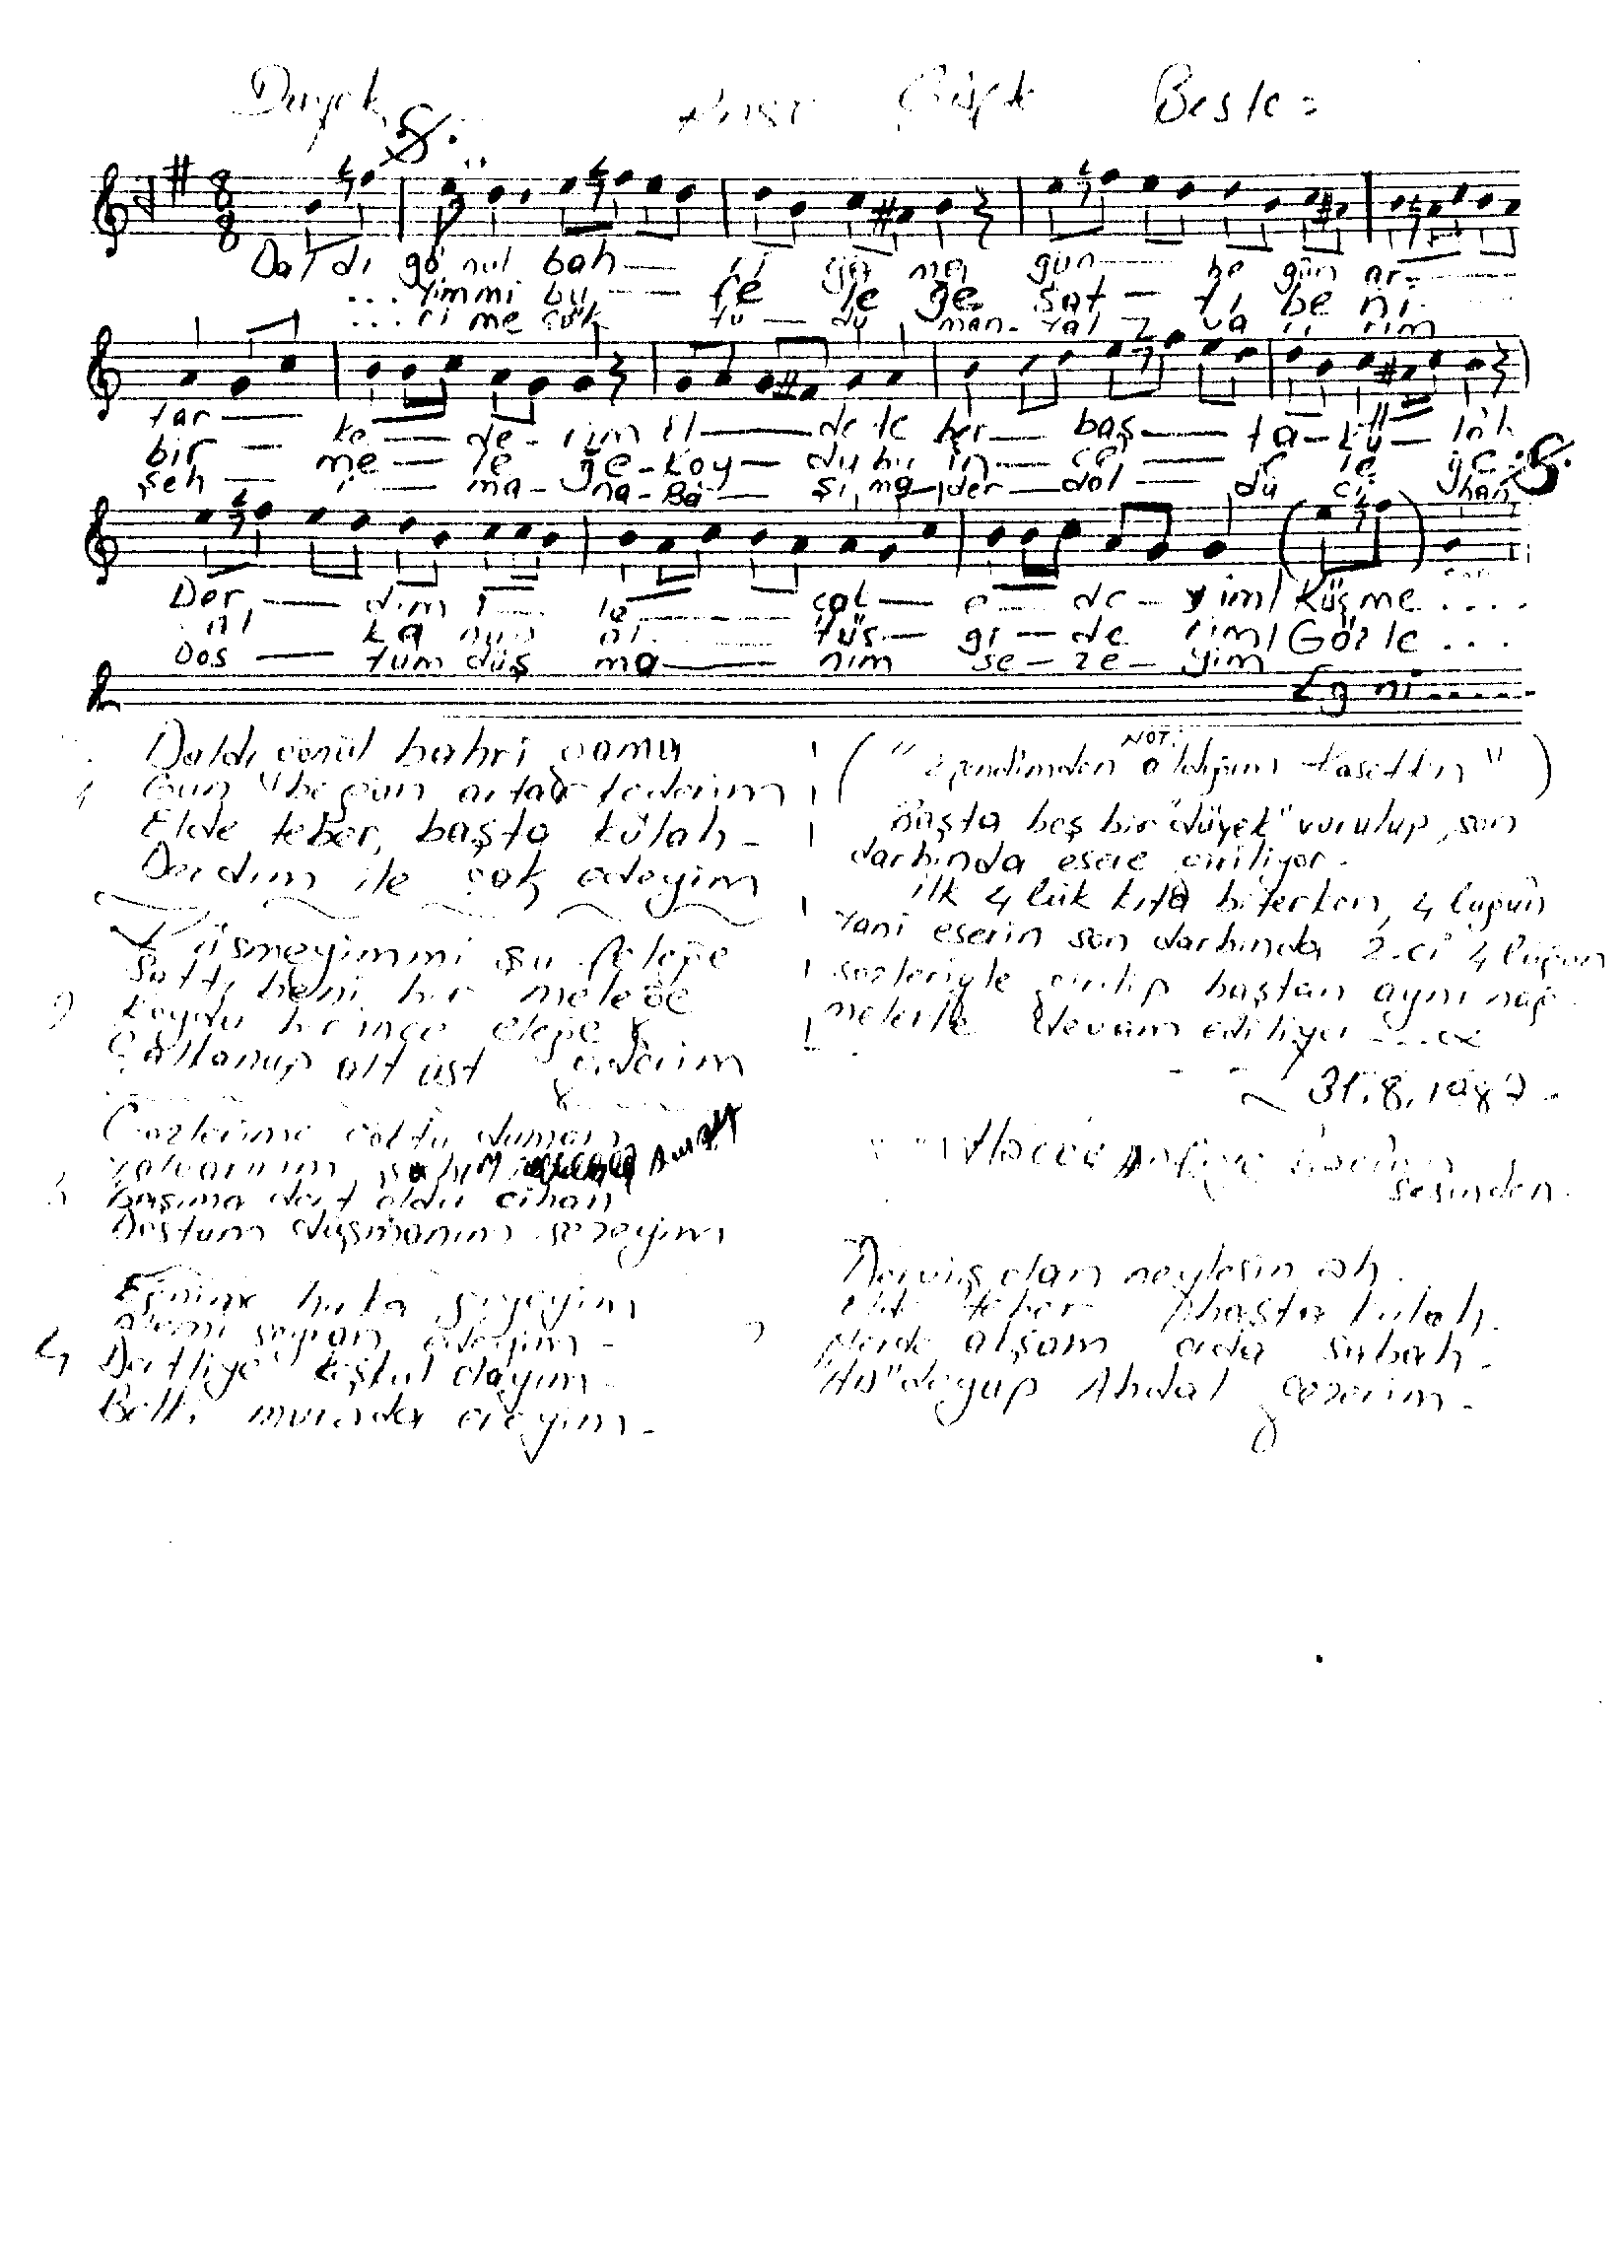 Düyek
Beste =
Dal dı gö nül bah — ri ga ma gün — be gün ar —
... yimmi bu — fe le ğe sat — tı be ni
... ri me çök tü — du man - yal — va rı rım
tar — ke — de - rim El — de te ber — baş — ta - kü - lâh
bir — me — le ğe - koy — du bir in — ce — e le ğe
şeh — i — ma - na - Ba — şı ma der — dol — du ci han
Der — dim i — le — çok — e — de - yim / Küsme ....
al ka nup al tüs — gi — de rim / Gözle ...
Dos — tum düş ma — nım se - ze - yim
Eg ni .....
Daldı gönül bahri gama
1 Gün be gün artar kederim
Elde teber, başta külah -
Derdim ile çok edeyim
Küsmeyimmi şu feleğe
Sattı beni bir meleğe
2 Koydu bir ince eleğe
Çalkanup alt üst giderim
Gözlerime çöktü duman
Yalvarırım şahım
3 Başıma dert oldu cihan
Dostum düşmanım sezeyim
Eğnime hırka giyeyim
Alemi seyran edeyim -
4 Dertliye keşkül olayım -
Belki murada ereyim -
NOT:
(" Efendimden aldığım kasetten ")
Başta beş bir "düyek" vurulup, son
darbında esere giriliyor -
ilk 4 lük kıta biterken, 4 lüğün
yani eserin son darbında 2.ci 4 lüğün
sözleriyle girilip baştan aynı nağ -
melerle devam ediliyor ...
31.8.1987 -
sesinden.
Derviş olan neylesin ah.
Elde teber başta külah.
Nerde akşam orda sabah -
"Hu" deyup Abdal gezerim -